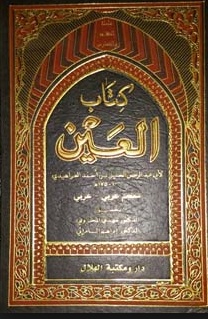 كتاب
العين
لأبي عبد الرحمن الخليل بن أحمد الفراهيدي
معجم عربي - عربي
الدكتور مهدي المخزومي
الدكتور إبراهيم السامرائي
دار ومكتبة الهلال